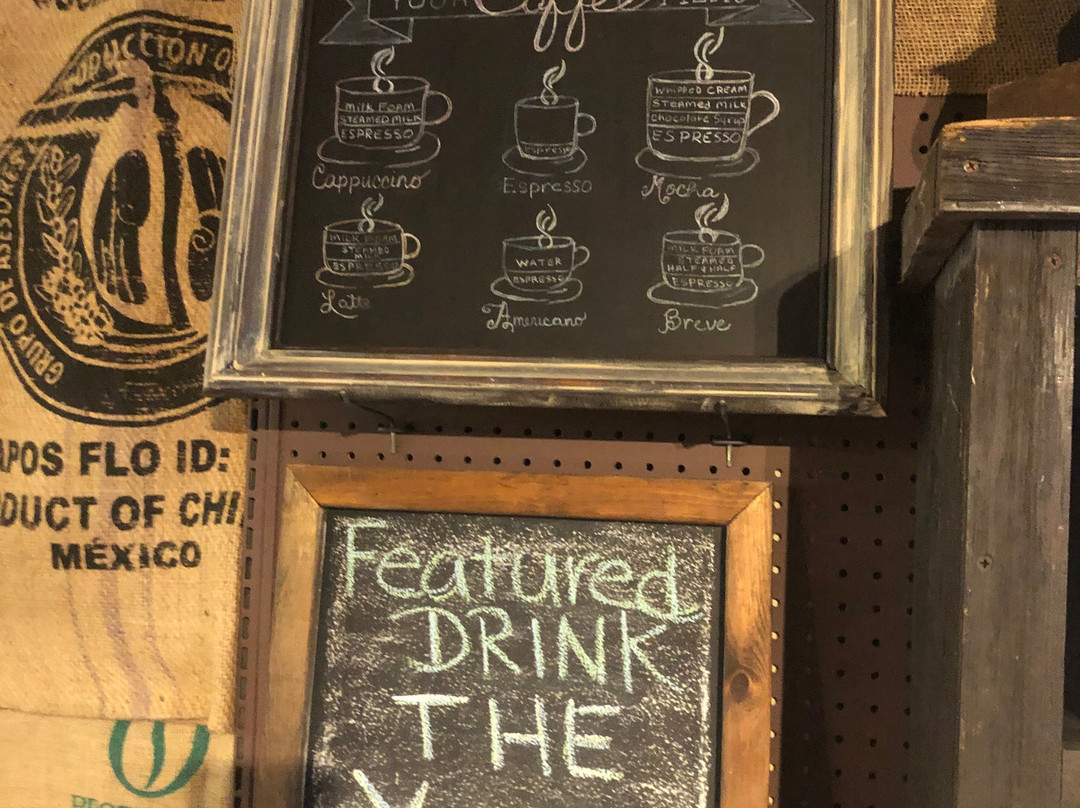 YOUR Coffee
MILK FOAM
STEAMED MILK
ESPRESSO
Cappuccino
Espresso
Espresso
WHIPPED CREAM
STEAMED MILK
Chocolate Syrup
ESPRESSO
Mocha
MILK FOAM
STEAMED
MILK
ESPRESSO
Latte
WATER
ESPRESSO
Americano
MILK FOAM
STEAMED
HALF & HALF
ESPRESSO
Breve
Featured
DRINK
THE
GRUPO DE ASESORES
APOS FLO ID:
DUCT OF CHI
MÉXICO